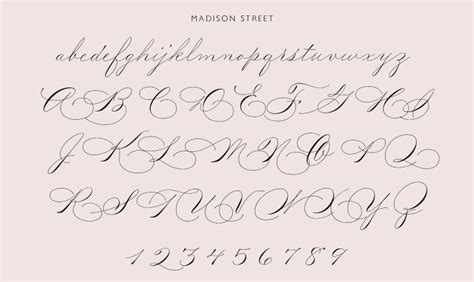 MADISON STREET
abcdefghijklmnopqrstuvwxyz
A B C D E F G H I
J K L M N O P Q
R S T U V W X Y Z
1 2 3 4 5 6 7 8 9